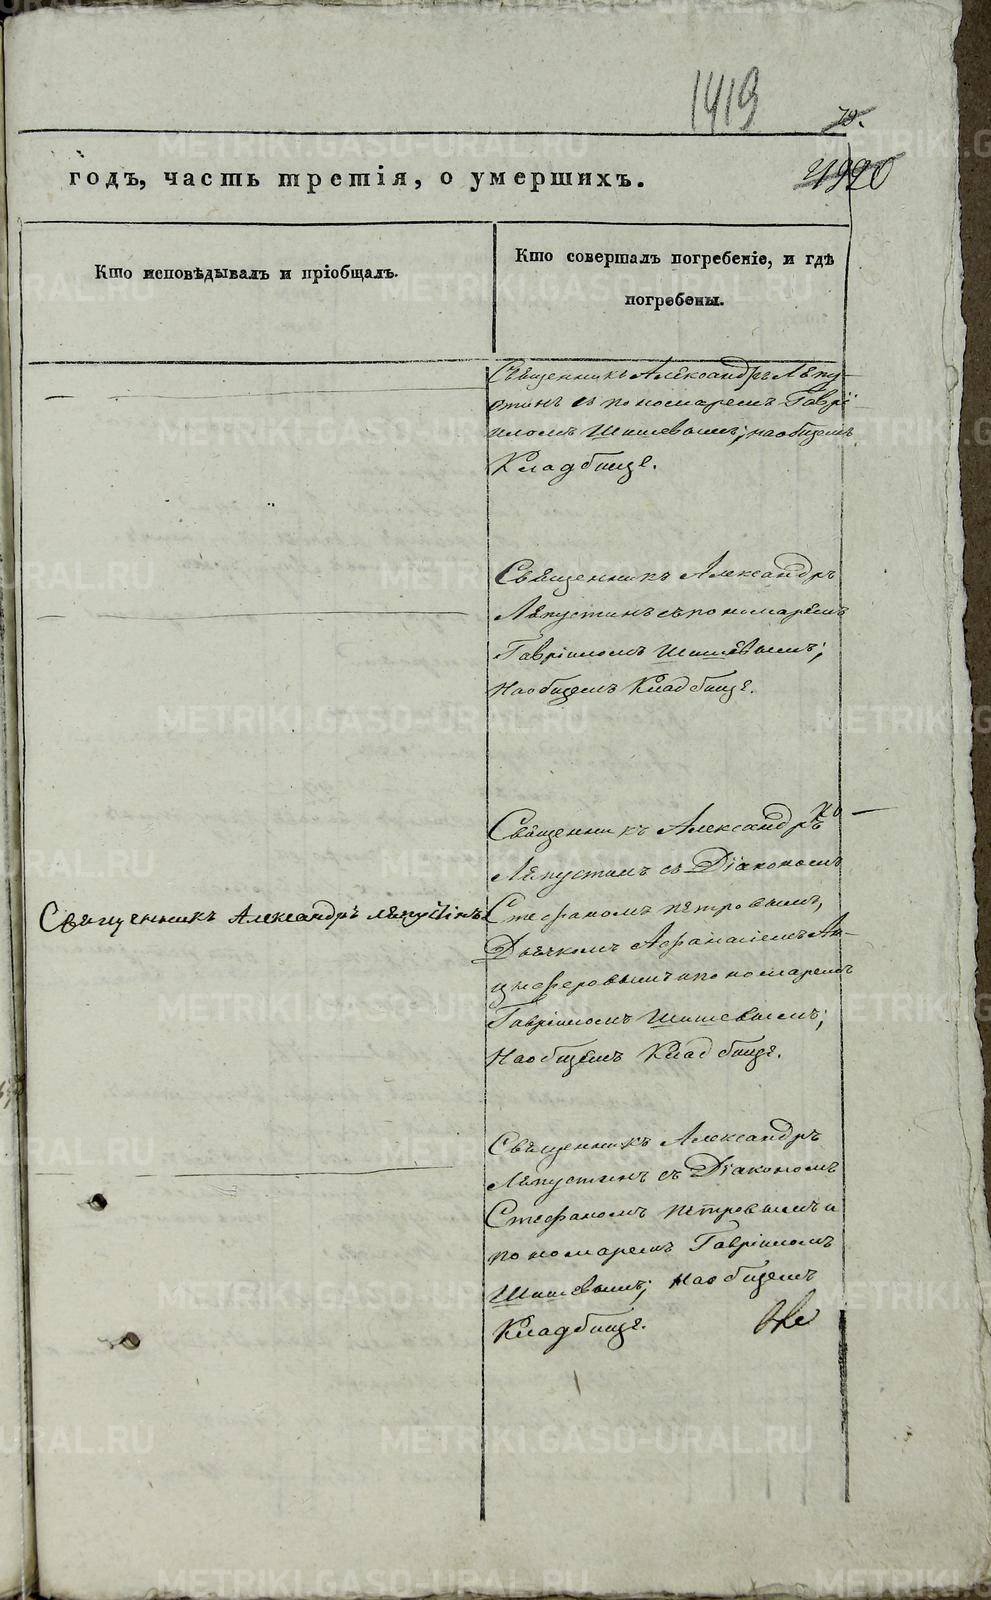 1419
79.
1920
годъ, часть третія, о умершихъ.
Кто исповѣдывалъ и пріобщалъ.
Кто совершалъ погребеніе, и гдѣ
погребены.
Священникъ Александръ Лепу-
стинъ съ пономаремъ Гаврі-
иломъ Шишевымъ; на общемъ
Кладбище.
Священникъ Александръ
Лепустинъ съ пономаремъ
Гавріиломъ Шишевымъ;
На общемъ Кладбище.
Священникъ Александръ
Лепустинъ съ Діакономъ
Священникъ Александръ Лепустинъ
Стефаномъ Петровымъ,
Дьячкомъ Афанасіемъ Ан-
циферовымъ и пономаремъ
Гавріиломъ Шишевымъ;
На общемъ Кладбище.
Священникъ Александръ
Лепустинъ съ Діакономъ
Стефаномъ Петровымъ и
пономаремъ Гавріиломъ
Шишевымъ; на общемъ
Кладбище.
METRIKI.GASO-URAL.RU